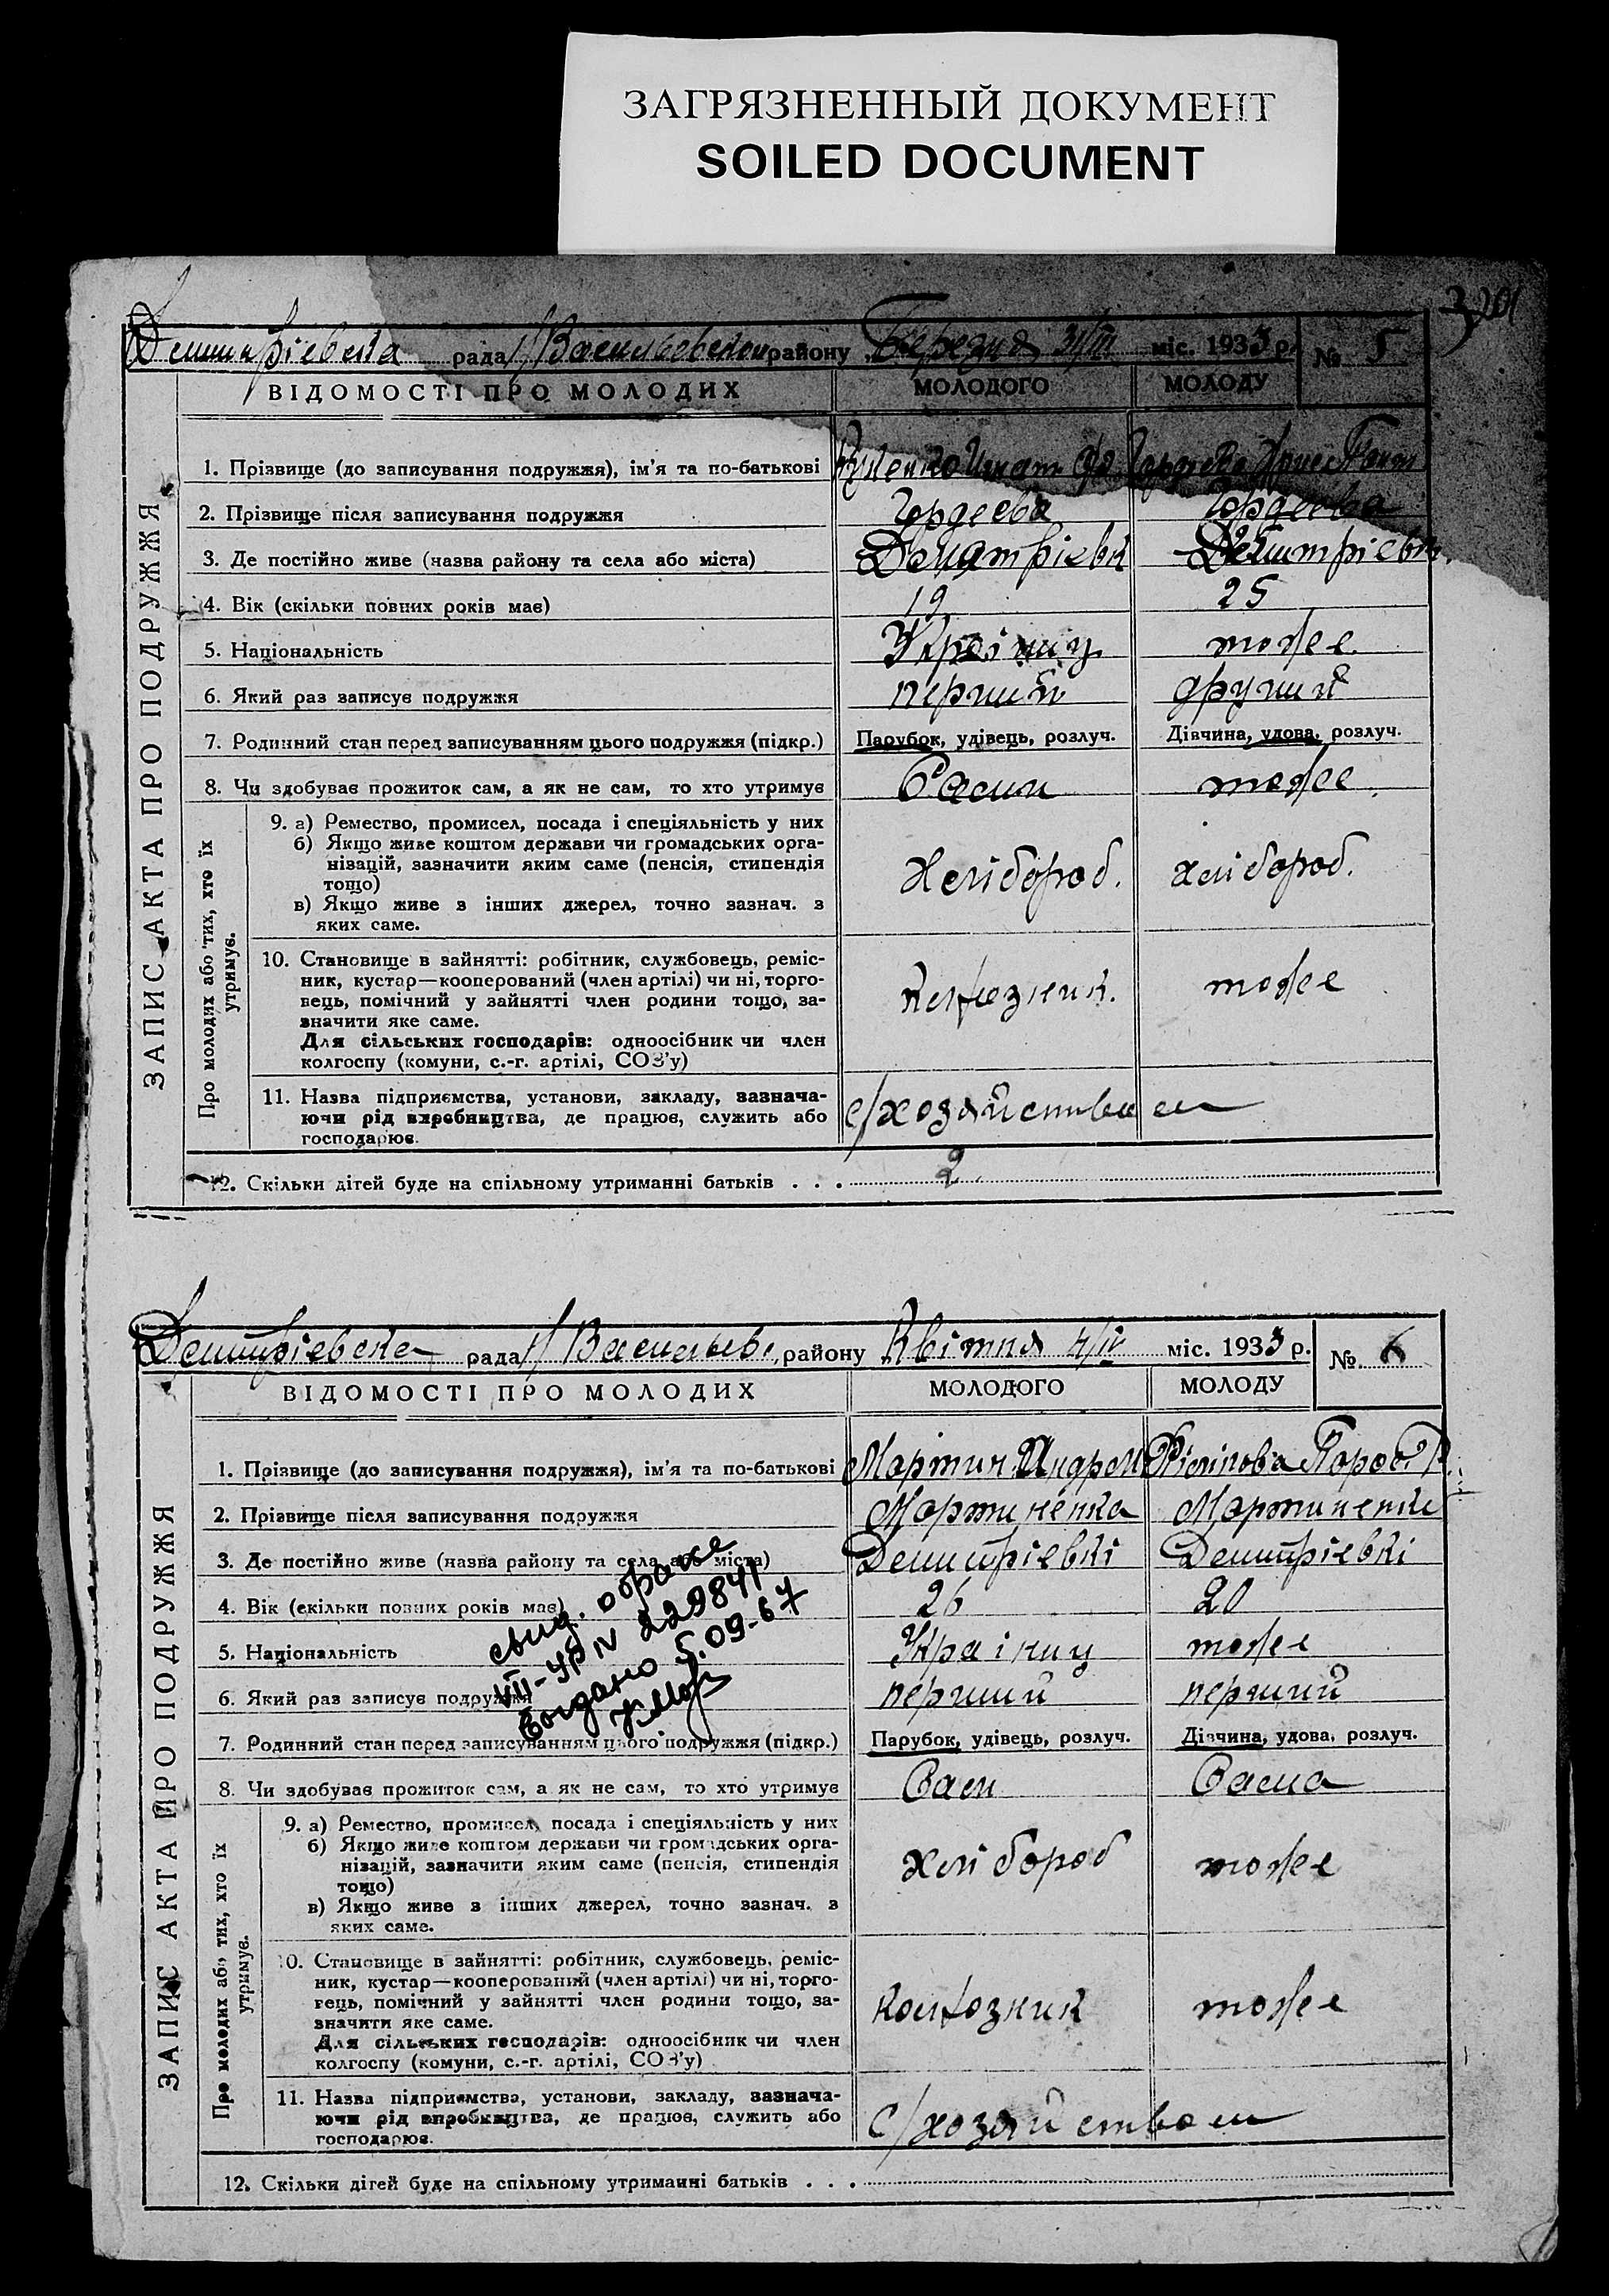 ЗАГРЯЗНЕННЫЙ ДОКУМЕНТ
SOILED DOCUMENT
Димитріевска рада Васильевском району Березня 31/III міс. 1933 р. № 5
ВІДОМОСТІ ПРО МОЛОДИХ МОЛОДОГО МОЛОДУ
ЗАПИС АКТА ПРО ПОДРУЖЖЯ
1. Прізвище (до записування подружжя), ім'я та по-батькові
2. Прізвище після записування подружжя Гордеева Гордеева
3. Де постійно живе (назва району та села або міста) Димитріевк Димитріевк
4. Вік (скільки повних років має) 19 25
5. Національність Україниц тоже
6. Який раз записує подружжя перший другий
7. Родинний стан перед записуванням цього подружжя (підкр.) Парубок, удівець, розлуч. Дівчина, удова, розлуч.
8. Чи здобуває прожиток сам, а як не сам, то хто утримує Сами тоже
Про молодих або тих, хто їх утримує.
9. а) Ремество, промисел, посада і спеціяльність у них
б) Якщо живе коштом держави чи громадських орга-
нізацій, зазначити яким саме (пенсія, стипендія
тощо) Хлібороб. хлібороб.
в) Якщо живе з інших джерел, точно зазнач. з
яких саме.
10. Становище в зайнятті: робітник, службовець, реміс-
ник, кустар—кооперований (член артілі) чи ні, торго-
вець, помічний у зайнятті член родини тощо, за- колхозник. тоже
значити яке саме.
Для сільських господарів: одноосібник чи член
колгоспу (комуни, с.-г. артілі, СОЗ'у)
11. Назва підприємства, установи, закладу, зазнача-
ючи рід виробництва, де працює, служить або с/хозяйством
господарює.
12. Скільки дітей буде на спільному утриманні батьків . . . 2
Димитріевска рада Васильев. району Квітня 4/IV міс. 1933 р. № 6
ВІДОМОСТІ ПРО МОЛОДИХ МОЛОДОГО МОЛОДУ
ЗАПИС АКТА ПРО ПОДРУЖЖЯ
1. Прізвище (до записування подружжя), ім'я та по-батькові Мартин. Андрей
2. Прізвище після записування подружжя Мартиненка Мартиненки
3. Де постійно живе (назва району та села або міста) Димитріевкі Димитріевкі
4. Вік (скільки повних років має) 26 20
5. Національність Україниц тоже
6. Який раз записує подружжя перший перший
свид. о браке
VII-УР IV 229841
выдано 5.09-67
7. Родинний стан перед записуванням цього подружжя (підкр.) Парубок, удівець, розлуч. Дівчина, удова, розлуч.
8. Чи здобуває прожиток сам, а як не сам, то хто утримує Сам Сама
Про молодих або тих, хто їх утримує.
9. а) Ремество, промисел, посада і спеціяльність у них
б) Якщо живе коштом держави чи громадських орга-
нізацій, зазначити яким саме (пенсія, стипендія хлібороб тоже
тощо)
в) Якщо живе з інших джерел, точно зазнач. з
яких саме.
10. Становище в зайнятті: робітник, службовець, реміс-
ник, кустар—кооперований (член артілі) чи ні, торго-
вець, помічний у зайнятті член родини тощо, за- колхозник тоже
значити яке саме.
Для сільських господарів: одноосібник чи член
колгоспу (комуни, с.-г. артілі, СОЗ'у)
11. Назва підприємства, установи, закладу, зазнача-
ючи рід виробництва, де працює, служить або с/хозяйством
господарює.
12. Скільки дітей буде на спільному утриманні батьків . . .